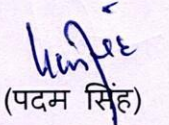 (पदम सिंह)